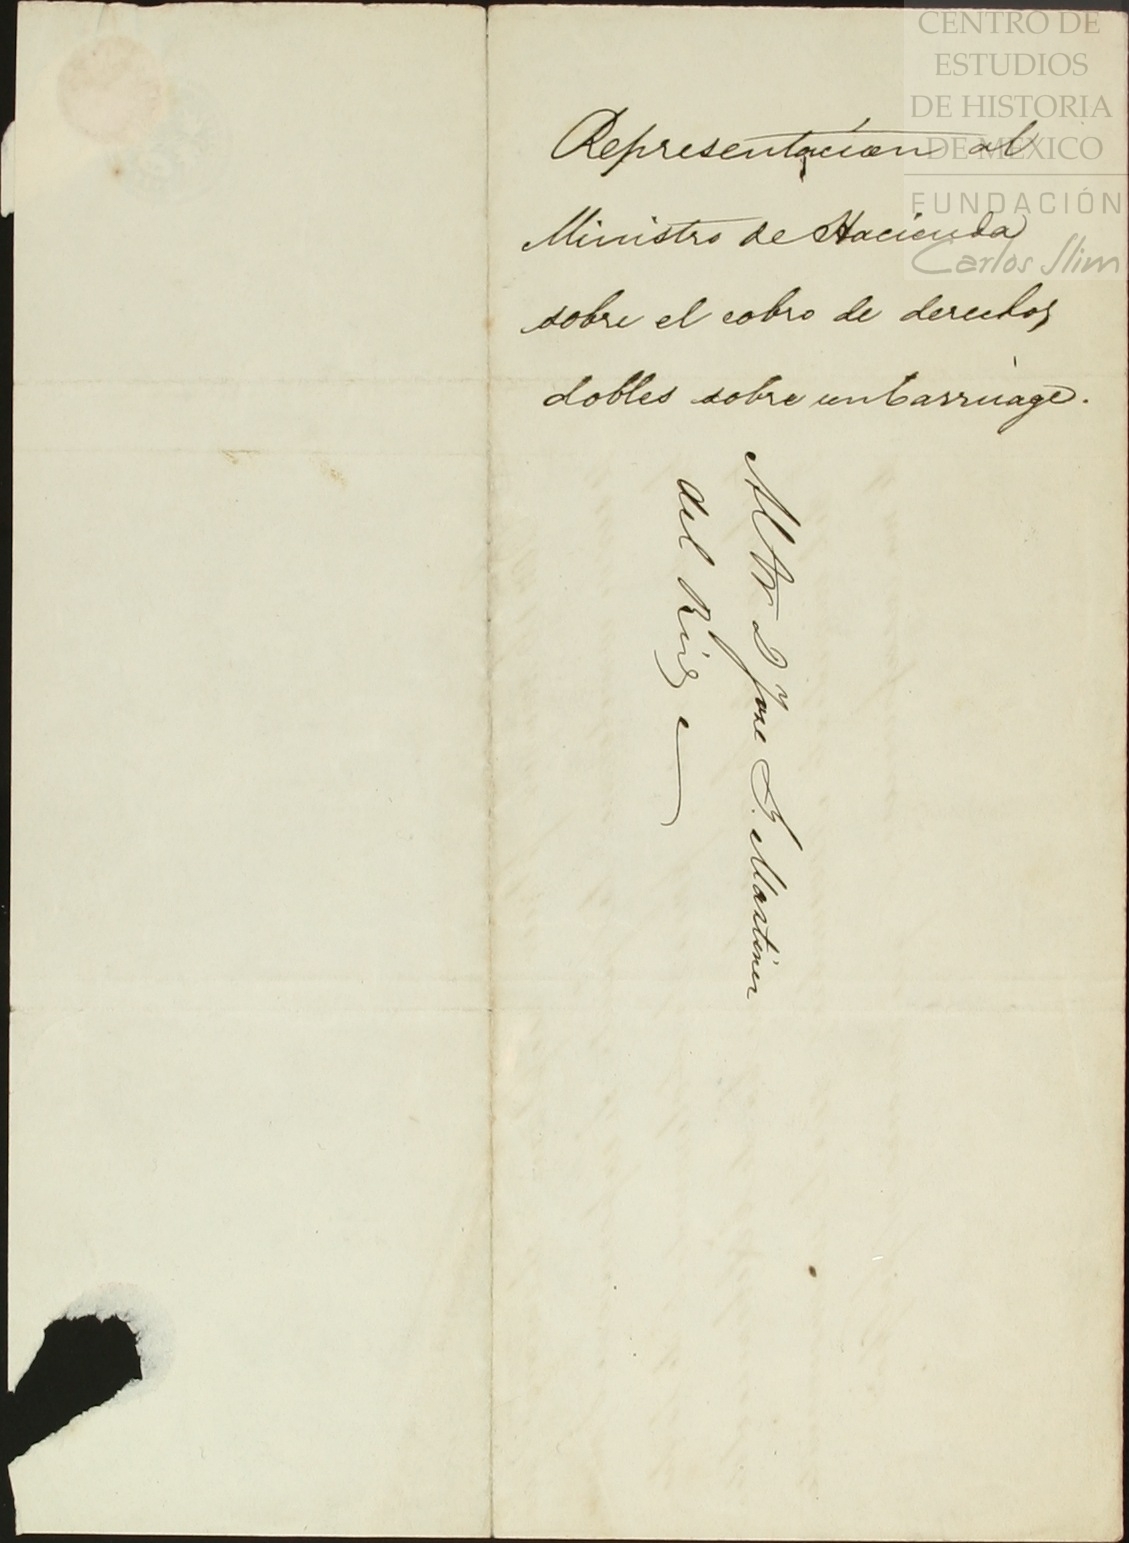 CENTRO DE
ESTUDIOS
DE HISTORIA
DE MÉXICO
FUNDACIÓN
Carlos Slim
Representacion al
Ministro de Hacienda
sobre el cobro de derechos
dobles sobre un Carruage.
Al Sr. Dn Jose S. Martinez
del Rio